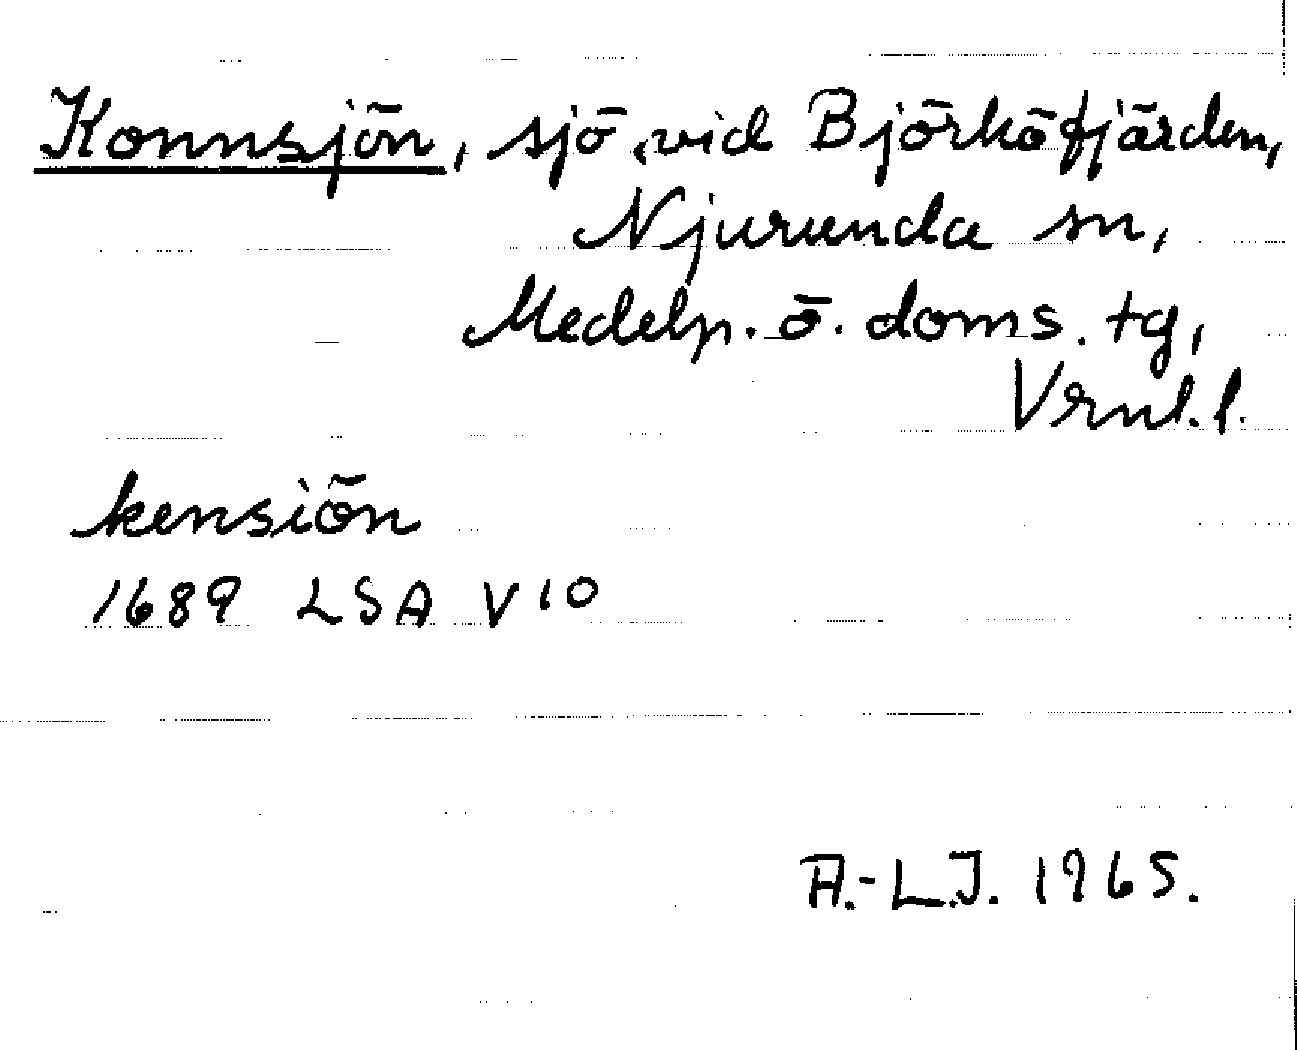 Konnsjön, sjö vid Björköfjärden,
Njurunda sn,
Medelp. ö. doms. tg,
Vrnl. l.
kensiön
1689 LSA V 10
A.-L.J. 1965.